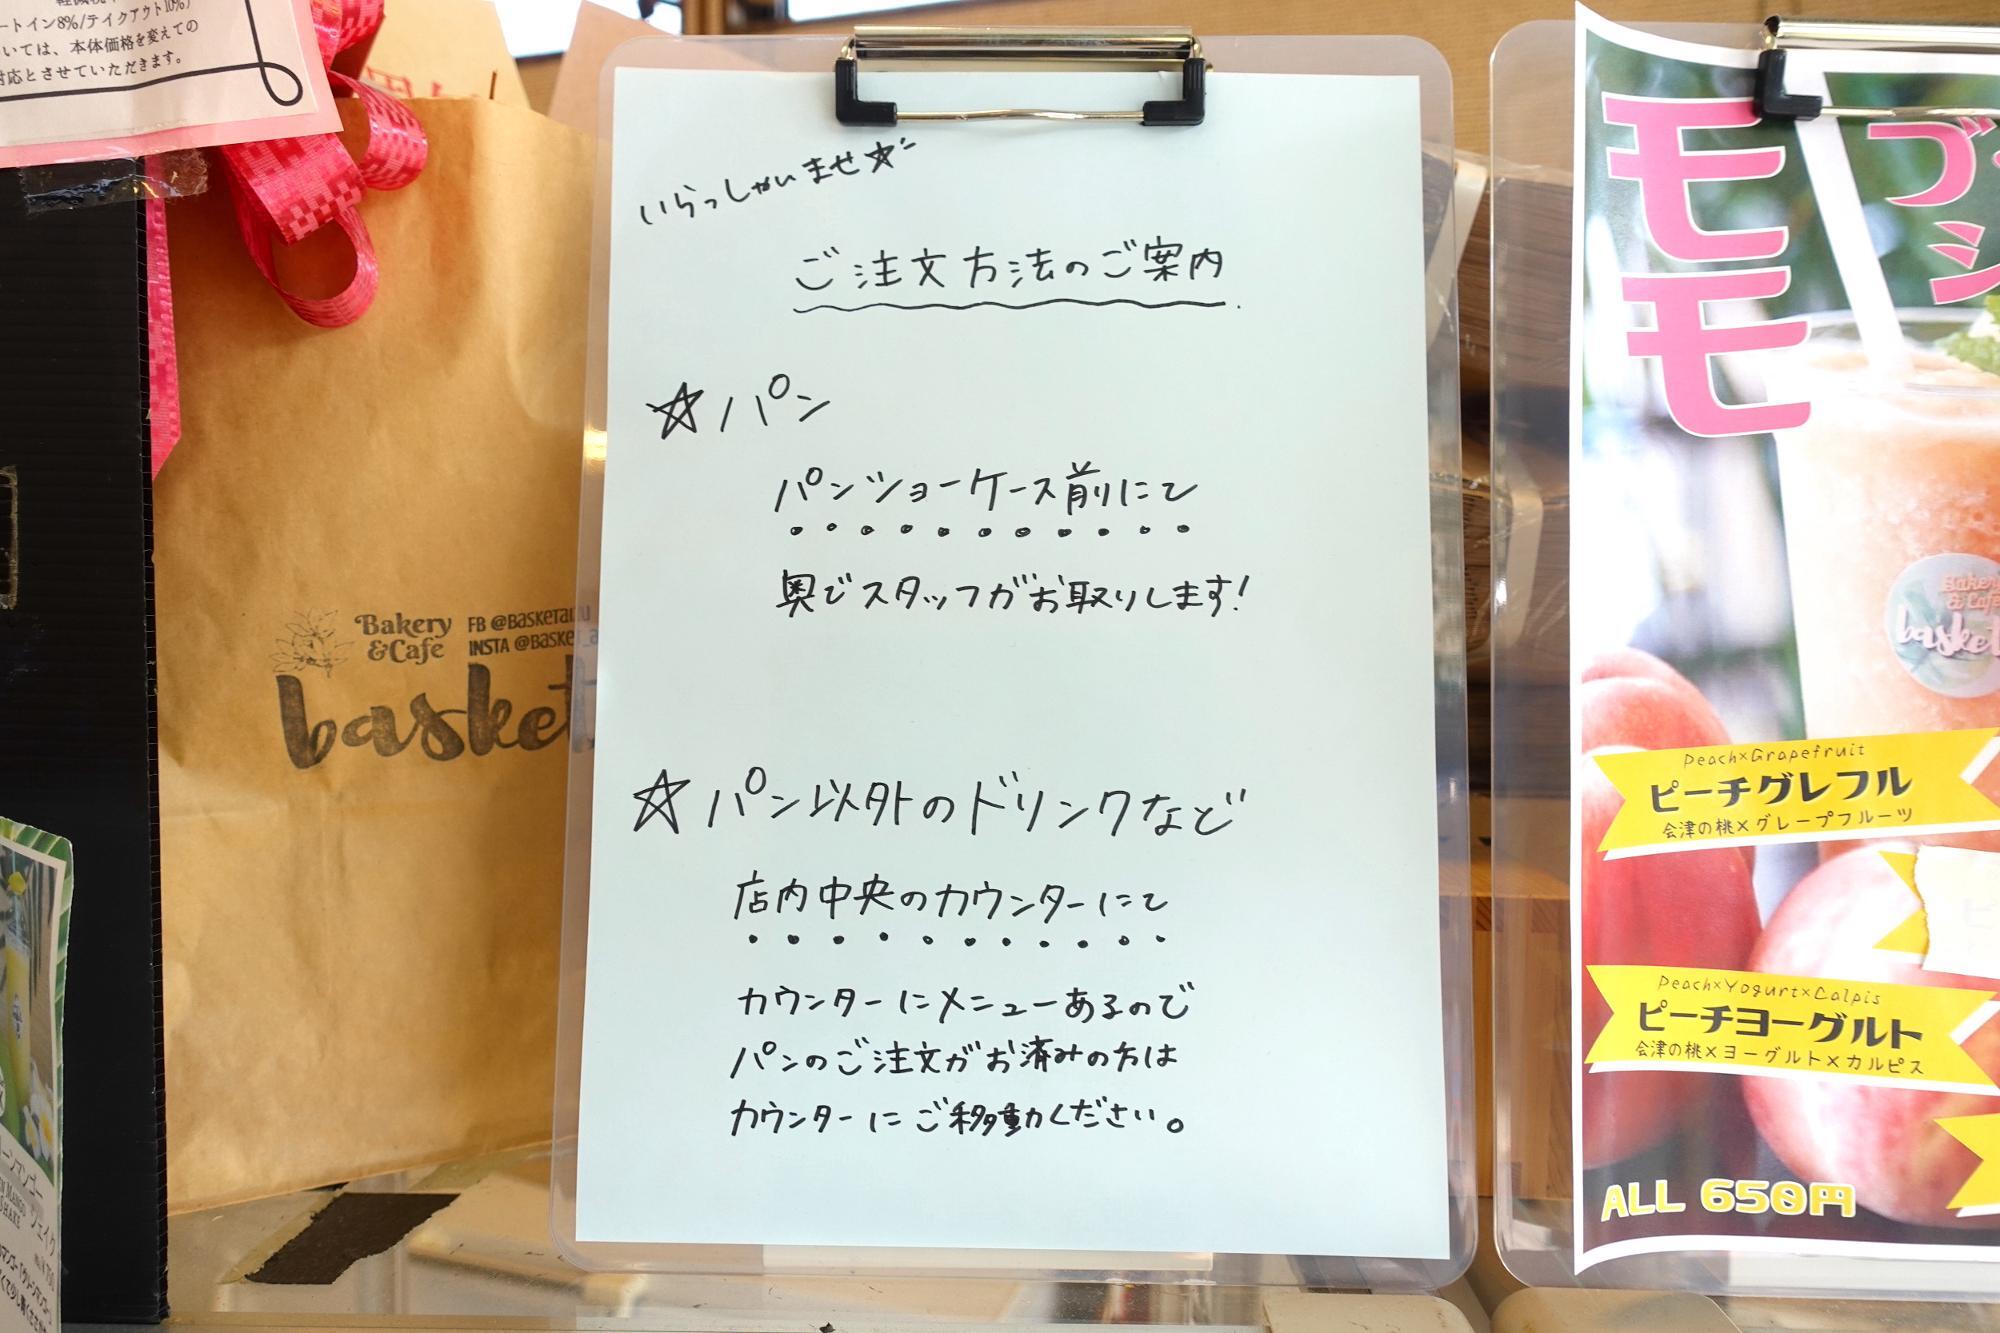 ートイン8%/テイクアウト10%)
いては、本体価格を変えての
対応とさせていただきます。
Bakery
&Cafe
FB @BASKETAIZU
INSTA @BASKET_A
basket
いらっしゃいませ☆
ご注文方法のご案内
☆パン
パンショーケース前にて
奥でスタッフがお取りします!
☆パン以外のドリンクなど
店内中央のカウンターにて
カウンターにメニューあるので
パンのご注文がお済みの方は
カウンターにご移動ください。
モモ
Bakery
& Cafe
basket
Peach×Grapefruit
ピーチグレフル
会津の桃×グレープフルーツ
Peach×Yogurt×Calpis
ピーチヨーグルト
会津の桃×ヨーグルト×カルピス
ALL 650円
ーンマンゴー
シェイク
MANGO
SHAKE